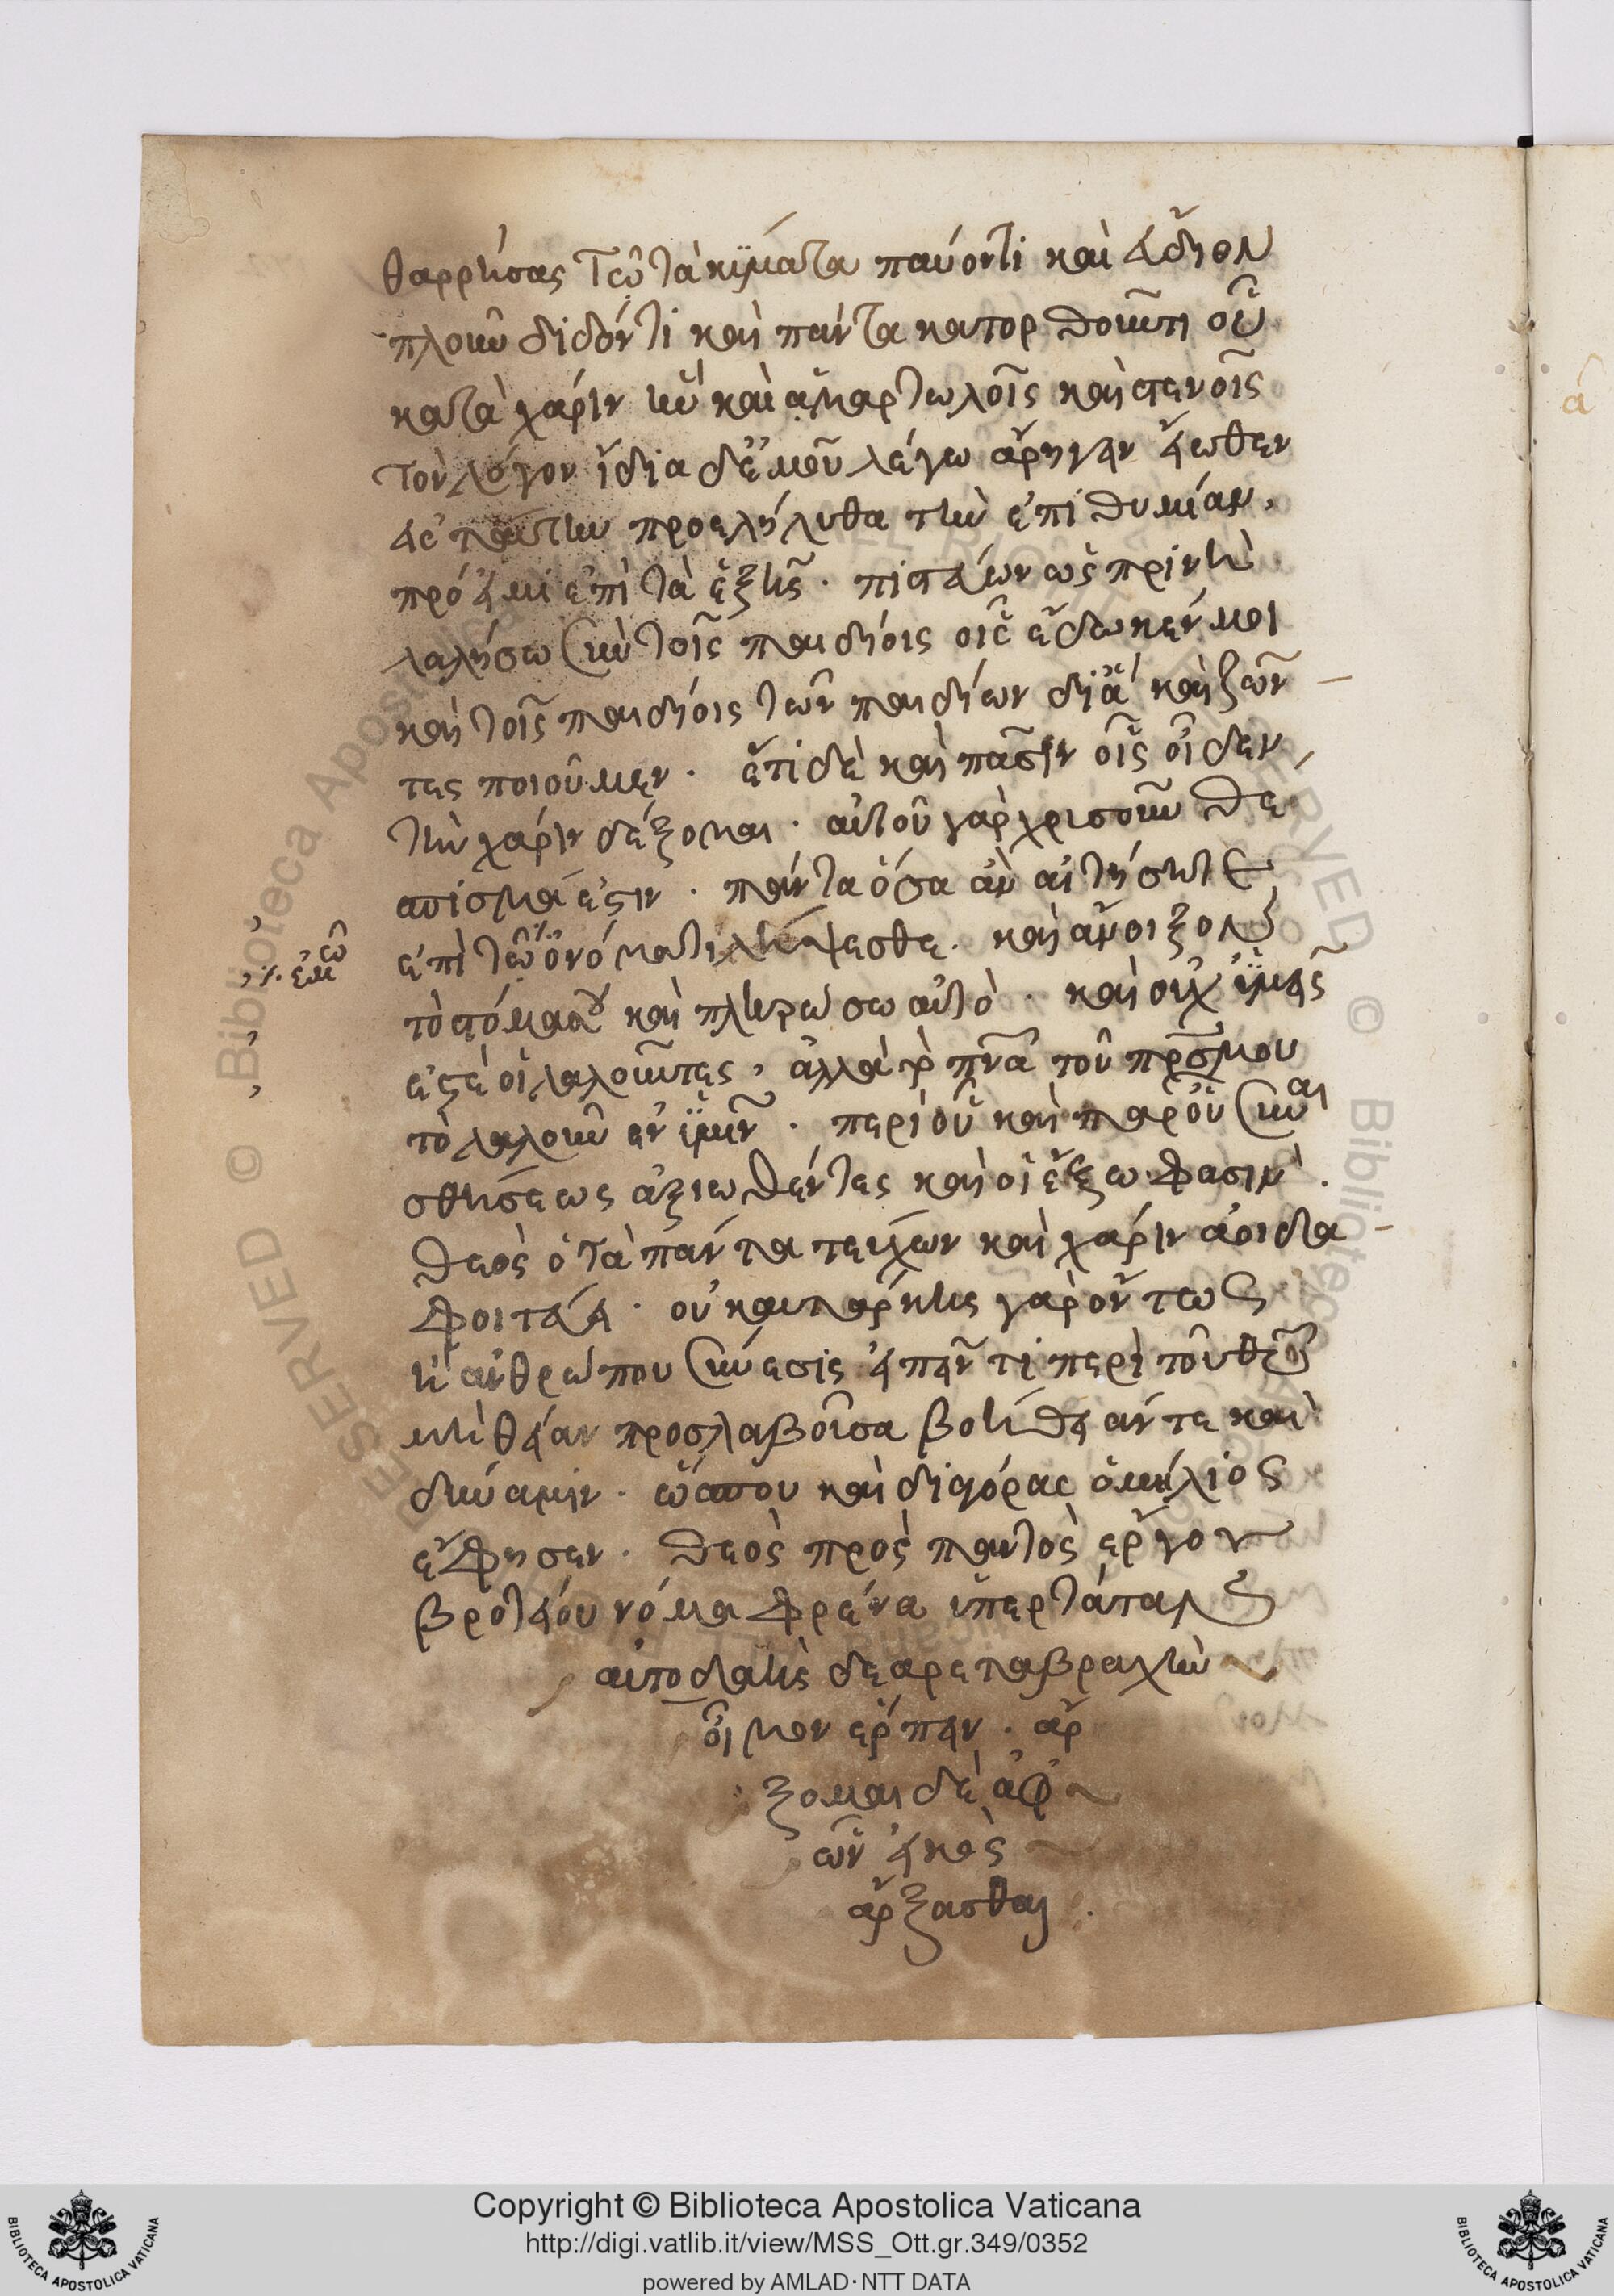 θαρρήσας τῷ τὰ κύματα παύοντι καὶ εὔδιον
πλοῦν διδόντι καὶ πάντα κατορθοῦντι οὗ
κατὰ χάριν καὶ ἁμαρτωλοῖς καὶ στενοῖς
τὸν λόγον ἰδία δέ μου λέγω ἀρήγειν
προελήλυθα τὴν ἐπιθυμίαν,
πρόειμι ἐπὶ τὰ ἑξῆς · πιστεύων ὡς πρὶν ἢ
λαλήσω σὺν τοῖς παιδίοις οἷς ἔδωκέν μοι
καὶ τοῖς παιδίοις τῶν παιδίων δι' ἃ καὶ ζῶν
τες ποιοῦμεν · ἔτι δὲ καὶ πᾶσιν οἷς οἶδεν
τὴν χάριν δέξομαι · αὐτοῦ γὰρ χριστοῦ θέ
σπισμά ἐστιν · πάντα ὅσα ἂν αἰτήσητε
ἐπὶ τῷ ὀνόματι λήψεσθε · καὶ ἄνοιξον
ἐμῷ
τὸ στόμα σου καὶ πληρώσω αὐτό · καὶ οὐχ ὑμεῖς
ἐστὲ οἱ λαλοῦντες, ἀλλὰ τὸ πνα τοῦ πρσ μου
τὸ λαλοῦν ἐν ὑμῖν · περὶ οὗ καὶ παρ' οὗ συναι
σθήσεως ἀξιωθέντες καὶ οἱ ἔξω φασιν ·
θεὸς ὁ τὰ πάντα τεύχων καὶ χάριν ἀοιδᾷ
φοιτάει · οὐκ αὐτάρκης γὰρ ὄντως
ἡ ἀνθρώπου σύνεσις εἰπεῖν τι περὶ τοῦ θυ
μὴ θείαν προσλαβοῦσα βοήθειάν τε καὶ
δύναμιν · ὥς που καὶ διαγόρας ὁ μήλιος
ἔφησεν · θεὸς πρὸ παντὸς ἔργου
βροτείου νόμα φρένα ὑπερτάταν
αὐτοδαὴς δ' ἀρετὰ βραχὺν
οἶμον ἕρπειν · ἄρ
ξομαι δὲ ἀφ'
ὧν εἰκὸς
ἄρξασθαι.
Copyright © Biblioteca Apostolica Vaticana
http://digi.vatlib.it/view/MSS_Ott.gr.349/0352
powered by AMLAD·NTT DATA
BIBLIOTECA APOSTOLICA VATICANA
BIBLIOTECA APOSTOLICA VATICANA